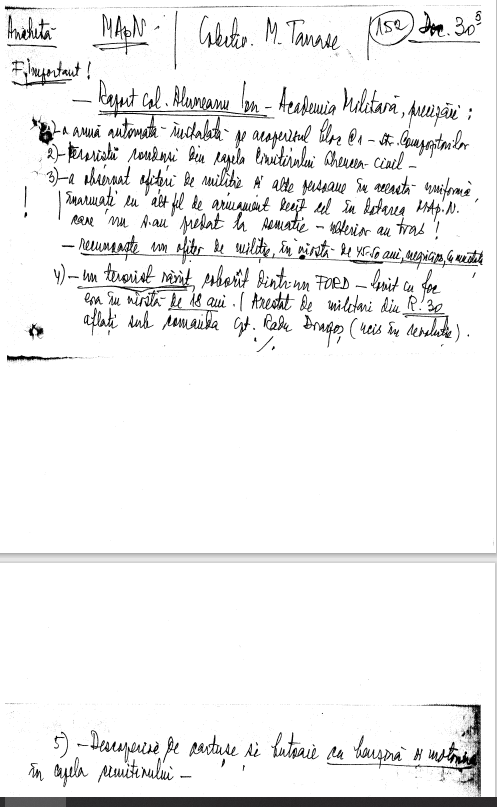 Anchetă MApN. Colectiv. M. Tanase 152 Doc. 30⁵
F. important!
— Raport Col. Alumneanu Ion – Academia Militară, precizări:
1) – o armă automată instalată pe acoperișul bloc C1 – str. Compozitorilor
2) – Teroriști din capela Cimitirului Ghencea civil –
3) – a observat ofițeri de miliție și alte persoane în această uniformă,
! înarmați cu alt fel de armament decît cel în dotarea MAp.N.
care nu s-au predat la somație – ulterior au tras!
– recunoaște un ofițer de miliție, în vîrstă de 45-50 ani, negricios, cu mustață
4) – un terorist rănit, coborît dintr-un FORD – lovit cu foc
era în vîrstă de 18 ani. / Arestat de militari din R. 30
aflați sub comanda Cpt. Radu Dragoș (ucis în revoluție).
./.
5) – Descoperire de cartușe și butoaie cu benzină și motorină
în capela cimitirului –